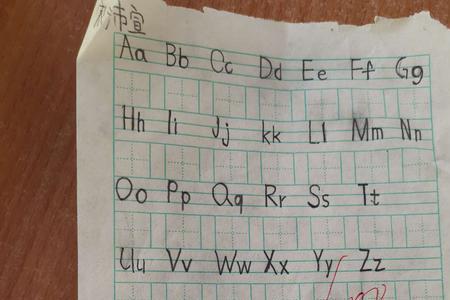 Aa Bb Cc Dd Ee Ff Gg
Hh Ii Jj kk Ll Mm Nn
Oo Pp Qq Rr Ss Tt
Uu Vv Ww Xx Yy Zz